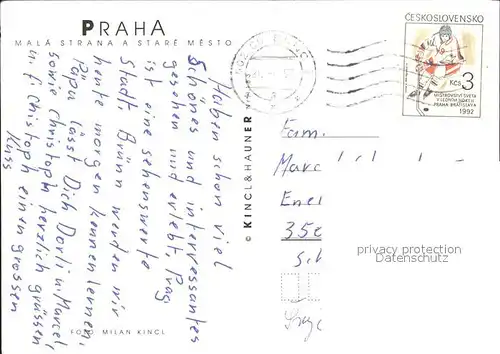 PRAHA
MALÁ STRANA A STARÉ MĚSTO
Haben schon viel
Schönes und interessantes
gesehen und erlebt, Prag
ist eine sehenswerte
Stadt. Brünn werden wir
heute morgen kennen lernen.
Papi lässt Dich Dorli u. Marcel,
sowie Christoph herzlich grüssen
u. f. Christoph einen grossen
Kuss
FOTO: MILAN KINCL
© KINCL & HAUNER
ČESKOSLOVENSKO
Kčs 3
MISTROVSTVÍ SVĚTA
V LEDNÍM HOKEJI
PRAHA BRATISLAVA
1992
Fam.
privacy protection
Datenschutz